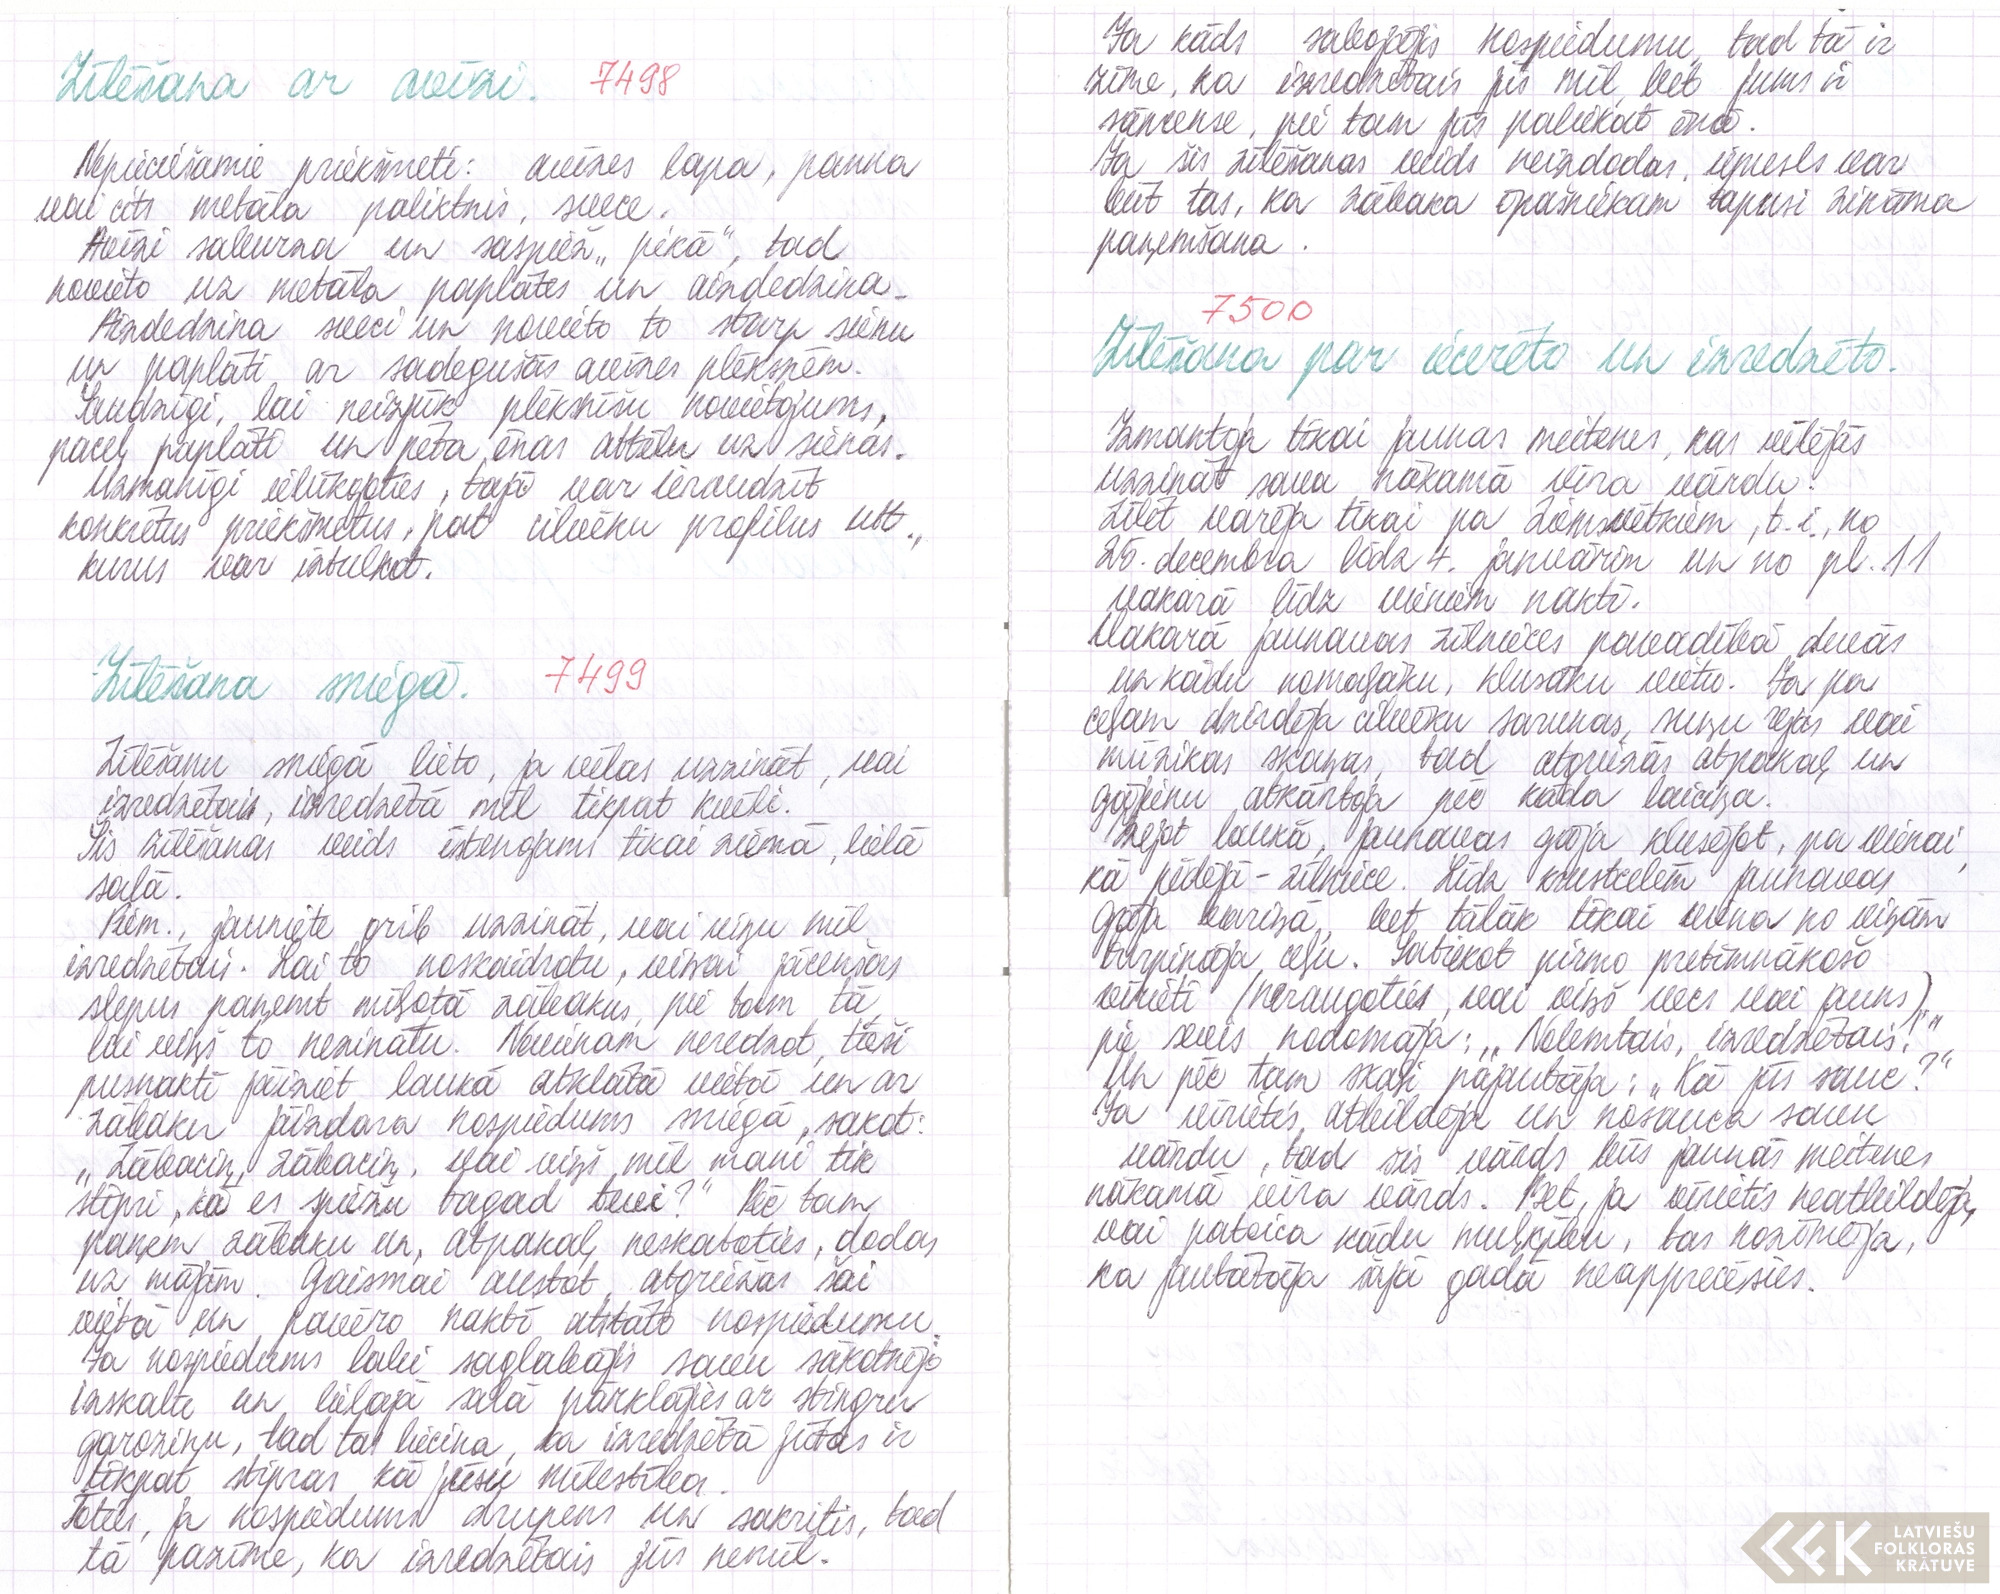 Zīlēšana ar avīzi. 7498
Nepieciešamie priekšmeti: avīzes lapa, panna
vai cits metāla paliktnis, svece.
Avīzi saburza un saspiež „pikā“, tad
novieto uz metāla paplātes un aizdedzina.
Aizdedzina sveci un novieto to starp sienu
un paplāti ar sadegušās avīzes plēksnēm.
Saudzīgi, lai neizjūk plēksnīšu novietojums,
paceļ paplāti un pēta ēnas attēlu uz sienas.
Uzmanīgi ielūkojoties, tajā var ieraudzīt
konkrētus priekšmetus, pat cilvēku profilus utt.,
kurus var iztulkot.
Zīlēšana sniegā. 7499
Zīlēšanu sniegā lieto, ja vēlas uzzināt, vai
izredzētais, izredzētā mīl tikpat kvēli.
Šis zīlēšanas veids īstenojams tikai ziemā, lielā
salā.
Piem., jauniete grib uzzināt, vai viņu mīl
izredzētais. Lai to noskaidrotu, viņai jācenšas
slepus paņemt mīļotā zābakus, pie tam tā,
lai viņš to nezinātu. Nevienam neredzot, tieši
pusnaktī jāiziet laukā atklātā vietā un ar
zābaku jāizdara nospiedums sniegā, sakot:
„Zābaciņ, zābaciņ, vai viņš mīl mani tik
stipri, kā es spiežu tagad tevi?“ Pēc tam
paņem zābaku un, atpakaļ neskatoties, dodas
uz mājām. Gaismai austot, atgriežas šai
vietā un pavēro naktī atstāto nospiedumu.
Ja nospiedums labi saglabājis savu sākotnējo
izskatu un lielajā salā pārklājies ar stingru
garoziņu, tad tas liecina, ka izredzētā jūtas ir
tikpat stipras kā jūsu mīlestība.
Toties, ja nospiedums drupens un sakritis, tad
tā pazīme, ka izredzētais jūs nemīl.
Ja kāds sabojājis nospiedumu, tad tā ir
zīme, ka izredzētais jūs mīl, bet jums ir
sāncense, pie tam jūs paliekat ēnā.
Ja šis zīlēšanas veids neizdodas, iemesls var
būt tas, ka zābaka īpašniekam tapusi zināma
paņemšana.
7500
Zīlēšana par iecerēto un izredzēto.
Izmantoja tikai jaunas meitenes, kas vēlējās
uzzināt sava nākamā vīra vārdu.
Zīlēt varēja tikai pa Ziemsvētkiem, t.i., no
25. decembra līdz 4. janvārim un no pl. 11
vakarā līdz vieniem naktī.
Vakarā jaunavas zīlnieces pavadībā devās
uz kādu nomaļāku, klusāku vietu. Ja pa
ceļam dzirdēja cilvēku sarunas, suņu rejas vai
mūzikas skaņas, tad atgriezās atpakaļ un
gājienu atkārtoja pēc kāda laiciņa.
Izejot laukā, jaunavas gāja klusējot, pa vienai,
kā pēdējā - zīlniece. Līdz krustcelēm jaunavas
gāja bariņā, bet tālāk tikai viena no viņām
turpināja ceļu. Satiekot pirmo pretīmnākošo
vīrieti (neraugoties, vai viņš vecs vai jauns),
pie sevis nodomāja: „Nolemtais, izredzētais!“
Un pēc tam skaļi pajautāja: „Kā jūs sauc?“
Ja vīrietis atbildēja un nosauca savu
vārdu, tad šis vārds būs jaunās meitenes
nākamā vīra vārds. Bet, ja vīrietis neatbildēja,
vai pateica kādu muļķību, tas nozīmēja,
ka jautātāja šajā gadā neapprecēsies.
LATVIEŠU
FOLKLORAS
KRĀTUVE